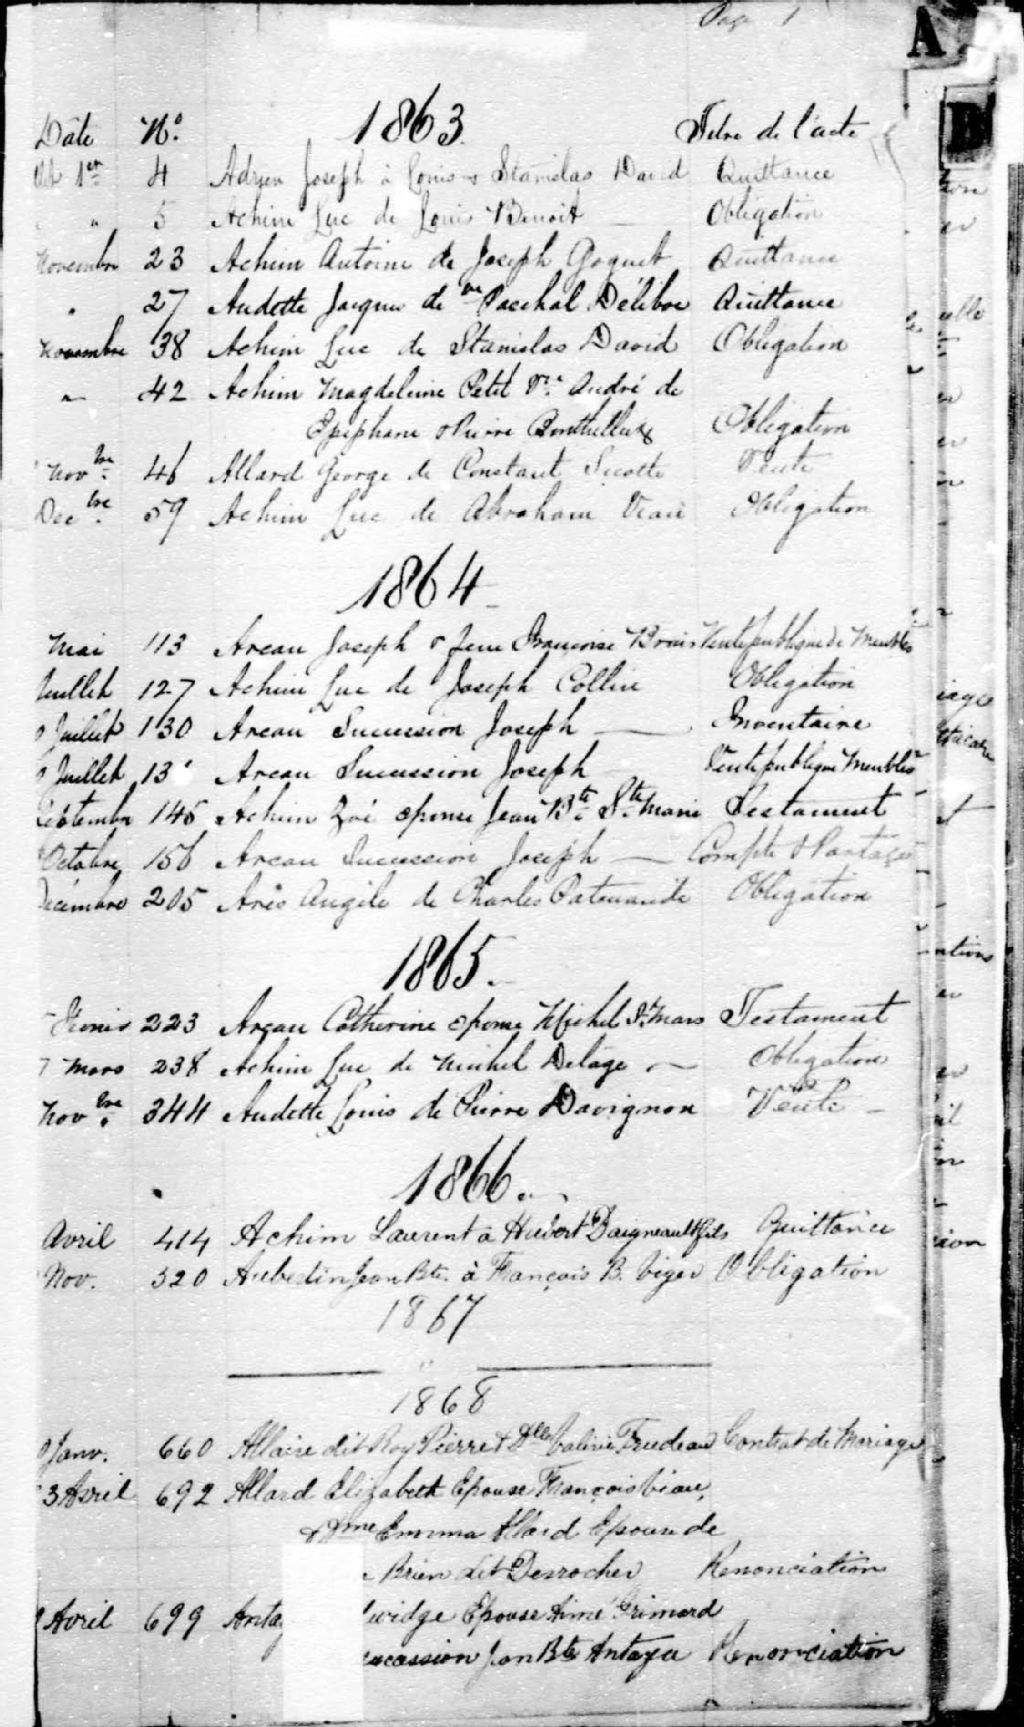 Page 1
A
B
Date No. 1863. Titre de l'acte
Oct 1er 4 Adrien Joseph à Louis & Stanislas David Quittance
" 5 Achim Luc de Louis Benoit — Obligation
Novembre 23 Achim Antoine de Joseph Goguet Quittance
" 27 Audette Jacques de ve Paschal Quittance
Novembre 38 Achim Luc de Stanislas David Obligation
" 42 Achim Magdeleine Petit Vve André de
Epiphane & Pierre Obligation
Novbre 46 Allard George de Constant Vente
Decbre 59 Achim Luc de Abraham Viau Obligation
1864
Mai 113 Areau Joseph & feue Françoise Brais Vente publique de Meubles
Juillet 127 Achim Luc de Joseph Collin Obligation
Juillet 130 Areau Succession Joseph — Inventaire
Juillet 13 Areau Succession Joseph Vente publique Meubles
Septembre 145 Achim Zoé epouse Jean Bte Ste Marie Testament
Octobre 156 Areau Succession Joseph — Compte & Partage
Décembre 205 Arès Angèle de Charles Patenaude Obligation
1865.
223 Areau Catherine epouse Michel St Mars Testament
7 Mars 238 Achim Luc de Michel Delâge — Obligation
Novbre 344 Audette Louis de Pierre Davignon Vente —
1866.
Avril 414 Achim Laurent à Hubert Daigneault fils Quittance
Nov. 520 Aubertin Jean Bte. à François B. Viger Obligation
1867
"
1868
Janv. 660 Allaire dit Roy Pierre & Dlle Valérie Trudeau Contrat de Mariage
3 Avril 692 Allard Elizabeth Epouse François Viau,
& Dme Emma Allard Epouse de
Brien dit Desrocher Renonciation
Avril 699 Epouse Aimé Grimard
Jean Bte Antaya Renonciation